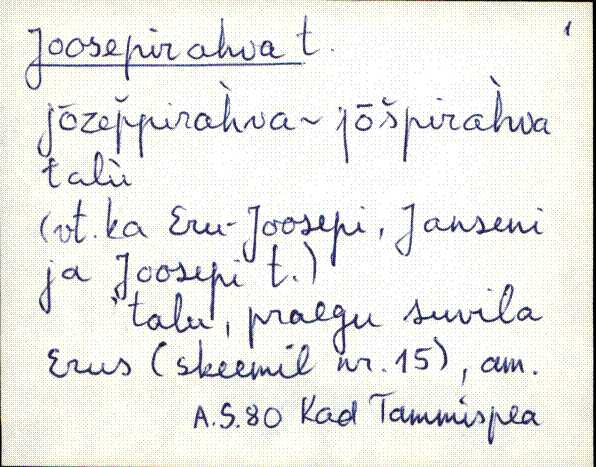 Joosepirahva t.
1
jōzep̆piràhva ~ jōšpiràhva
talù
(vt. ka Eru-Joosepi, Janseni
ja Joosepi t.)
talu, praegu suvila
Erus (skeemil nr. 15), am.
A.S.80 Kad Tammispea